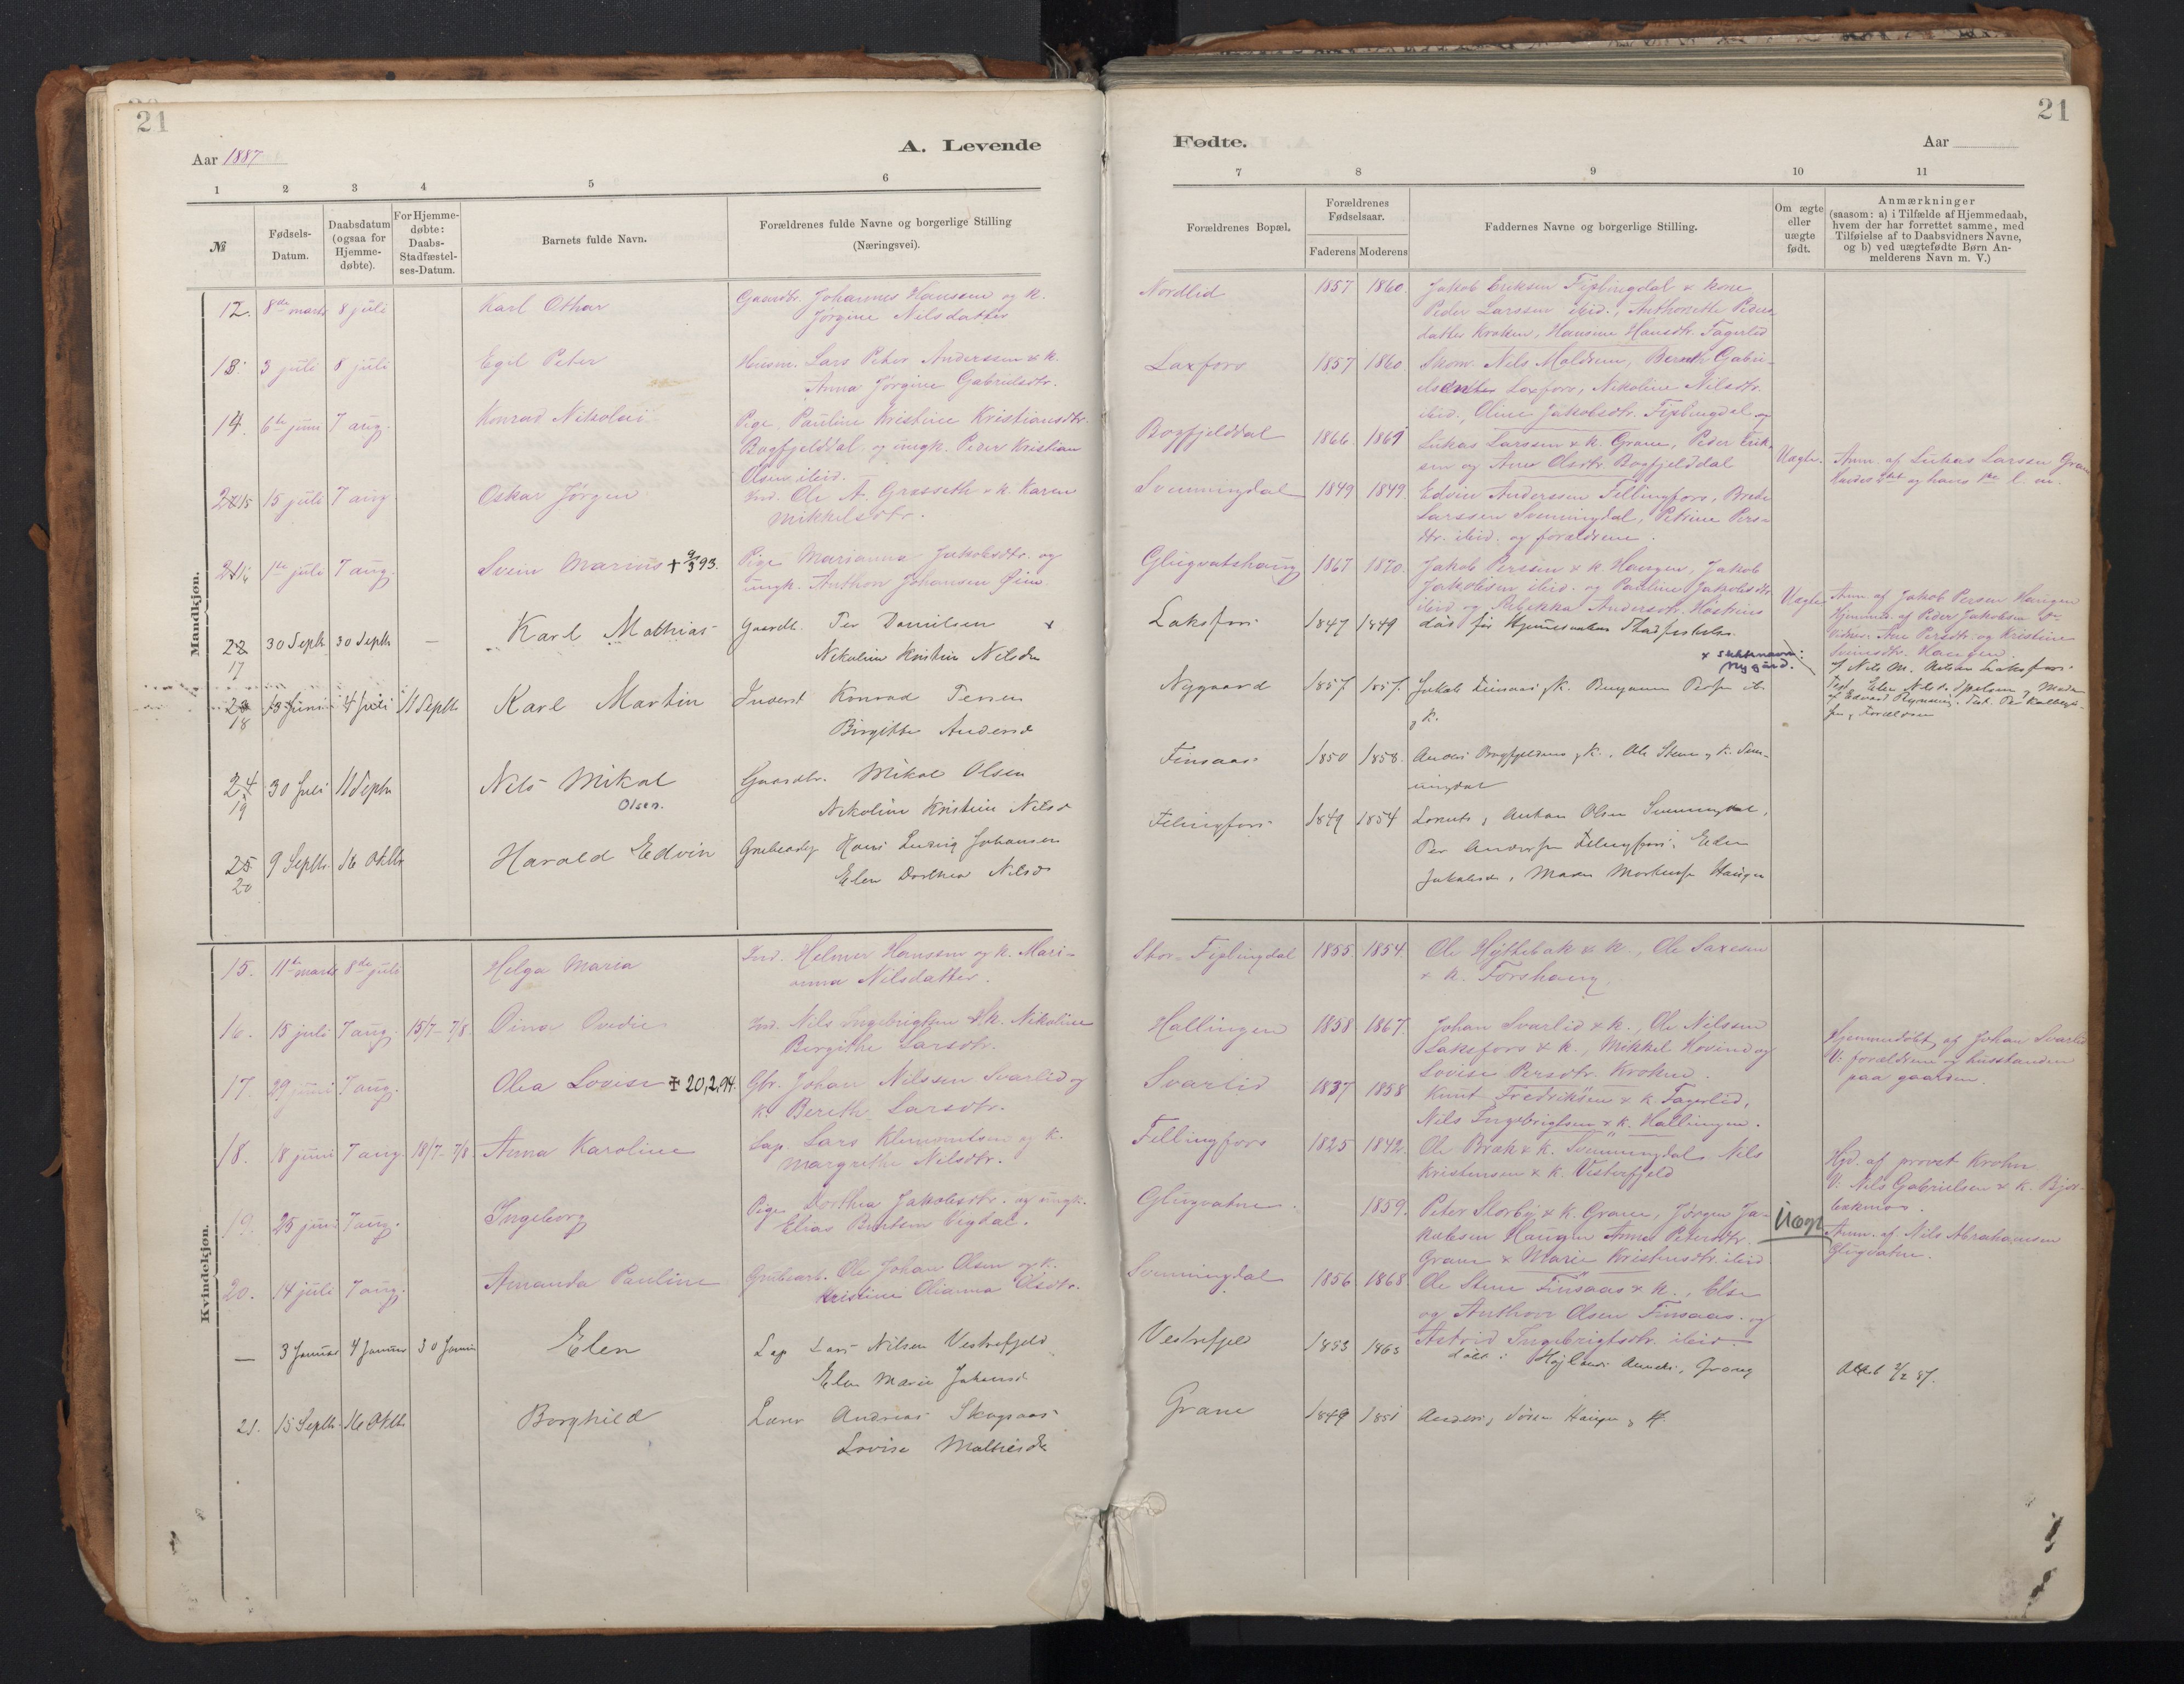 21
Aar 1887
A. Levende
1 2 3 4 5 6
№
Fødsels-Datum.
Daabsdatum (ogsaa for Hjemme-døbte).
For Hjemme-døbte: Daabs-Stadfæstel-ses-Datum.
Barnets fulde Navn.
Forældrenes fulde Navne og borgerlige Stilling
(Næringsvei).
Mandkjøn.
12. 8de marts 8 juli Karl Othar Gaardbr. Johannes Hansen og k.
Jørgine Nilsdatter
13. 3 juli 8 juli Egil Peter Husm. Lars Peter Anderssen & k.
Anna Jørgine Gabrielsdtr.
14. 6te juni 7 aug. Konrad Nikolai Pige Pauline Kristine Kristiansdtr.
Bogfjelddal og ungk. Peder Kristian
Olsen ibid.
15 15 juli 7 aug. Oskar Jørgen Ind. Ole A. Grasseth & k. Karen
Mikkelsdtr.
16 1te juli 7 aug. Svein Marius + 9/3 93. Pige Marianna Jakobsdtr. og
ungk. Anthon Johansen Øim.
22 30 Septb 30 Septb — Karl Mathias Gaardb. Per Danielsen x
17 Nikoline Kristine Nilsdr
18 13 Juni 4 Juli 11 Septb Karl Martin Inderst Konrad Persen
Birgitte Andersd
24 30 Juli 11 Septb Nils Mikal Gaardbr. Mikal Olsen
19 Olsen. Nikoline Kristine Nilsd
25 9 Septbr. 16 Oktbr Harald Edvin Grubearb. Hans Ludvig Johansen
20 Elen Dorthea Nilsd
Kvindekjøn.
15. 11te marts 8de juli Helga Maria Ind. Helmer Hanssen og k. Mari-
anna Nilsdatter.
16. 15 juli 7 aug. 15/7 - 7/8 Dina Ovedie Ind. Nils Ingebrigtsen & k. Nikoline
Bergithe Larsdtr.
17. 29 juni 7 aug. Olea Lovise ‡ 20,2,94. Gbr. Johan Nilssen Svarlid og
k. Bereth Larsdtr.
18. 18 juni 7 aug. 18/7 - 7/8 Anna Karoline Lap Lars Klemmentsen og k.
Margrethe Nilsdtr.
19. 25 juni 7 aug. Ingeborg Pige Dorthea Jakobsdtr. og ungk.
Elias Berntsen Vegdal.
20. 14 juli 7 aug. Amanda Pauline Grubearb. Ole Johan Olsen og k.
Kristine Olianna Olsdtr.
— 3 Januar 4 Januar 30 Januar Elen Lap Lars Nilsen Vestrefjeld
Elen Marie Johansd.
21. 15 Septb. 16 Oktbr Borghild Lærer Andreas Skogaas
Lovise Mathiesdr
21
Fødte.
Aar
7 8 9 10 11
Forældrenes Bopæl.
Forældrenes Fødselsaar.
Faderens Moderens
Faddernes Navne og borgerlige Stilling.
Om ægte eller uægte født.
Anmærkninger
(saasom: a) i Tilfælde af Hjemmedaab,
hvem der har forrettet samme, med
Tilføielse af to Daabsvidners Navne,
og b) ved uægtefødte Børn An-
melderens Navn m. V.)
Nordlid 1857 1860. Jakob Eriksen Fiplingdal & kone
Peder Larssen ibid., Anthonette Peders-
datter Kroken, Hansine Hansdtr. Fagerlid
Laxfors 1857 1860. Skom. Nils Moldrem, Bernth Gabri-
elsen Laxfors, Nikoline Nilsdtr.
ibid. Oline Jakobsdtr. Fiplingdal og
Bogfjelddal 1866. 1861 Lukas Larssen & k. Grane, Peder Erik-
sen og Ane Olsdtr Bogfjelddal Uægte. Anm. af Lukas Larsen Grane
Svenningdal 1849 1849. Edvin Anderssen Fellingfors, Brede
Larssen Svenningdal, Petrine Pers-
dtr. ibid. og forældrene.
Glugvatshaug 1867 1870. Jakob Persen & k. Haugen, Jakob
Jakobsen ibid. og Pauline Jakobsdtr
ibid. og Rebekka Andersdtr. Uægte Anm. af Jakob Persen Haugen
Hjemmed. af Peder Jakobsen
Vidner: Ane Persdtr. og Kristine
Sveinsdtr. Haugen.
Laksfors 1847 1849 døs før Hjemmedaabens Stadfæstelse.
x slektsnavn:
Nygård.
af Nils M. Laksfors.
Nygaard 1857 1857. Jakob Finsaas & K. Benjamin Persen ib.
& K.
Finsaas 1850 1858. Anders Bogfjeldmo & K., Ole Stene & K. Svenn-
ingdal
Felingfors 1849 1854 Lorents & Anton Olsen Svenningdal,
Per Andersen Felingfors, Elen
Jakobsd., Maren Haugen
Stor-Fiplingdal 1855 1854. Ole Hyttebak & k., Ole Saxesen
& k. Forshaug.
Hallingen 1858 1867. Johan Svarlid & k., Ole Nilssen
Laksfors & k., Mikkel Hovind og
Lovise Persdtr. Kroken. Hjemmedøbt af Johan Svarlid
V: forældrene og husstanden
paa gaarden.
Svarlid 1837 1858 Knut Fredriksen & k. Fagerlid,
Nils Ingebrigtsen & k. Hallingen.
Fellingfors 1825 1842. Ole Bræk & k. Svenningdal Nils
Kristensen & k. Vesterfjeld Hjd. af provst Krohn
V: Nils Gabrielsen & k. Bjor-
bækmo.
Glugvatne. 1859. Peter Storbjg & k. Grane, Jørgen Ja-
kobsen Haugen Anna Petersdtr.
Grane & Marie Kristensdtr. ibid. Uægt Anm. af Nils Abrahamsen
Glugvatne.
Svenningdal 1856 1868 Ole Stene Finsaas & k., Else
og Anthon Olsen Finsaas. og
Astrid Ingebrigtsdtr. ibid.
Vestrefjeld 1853 1863 døbt i Høilandi Anneks, Grong Attest 2/2 87.
Grane 1849 1851 Anders & Sören Haugen & K.